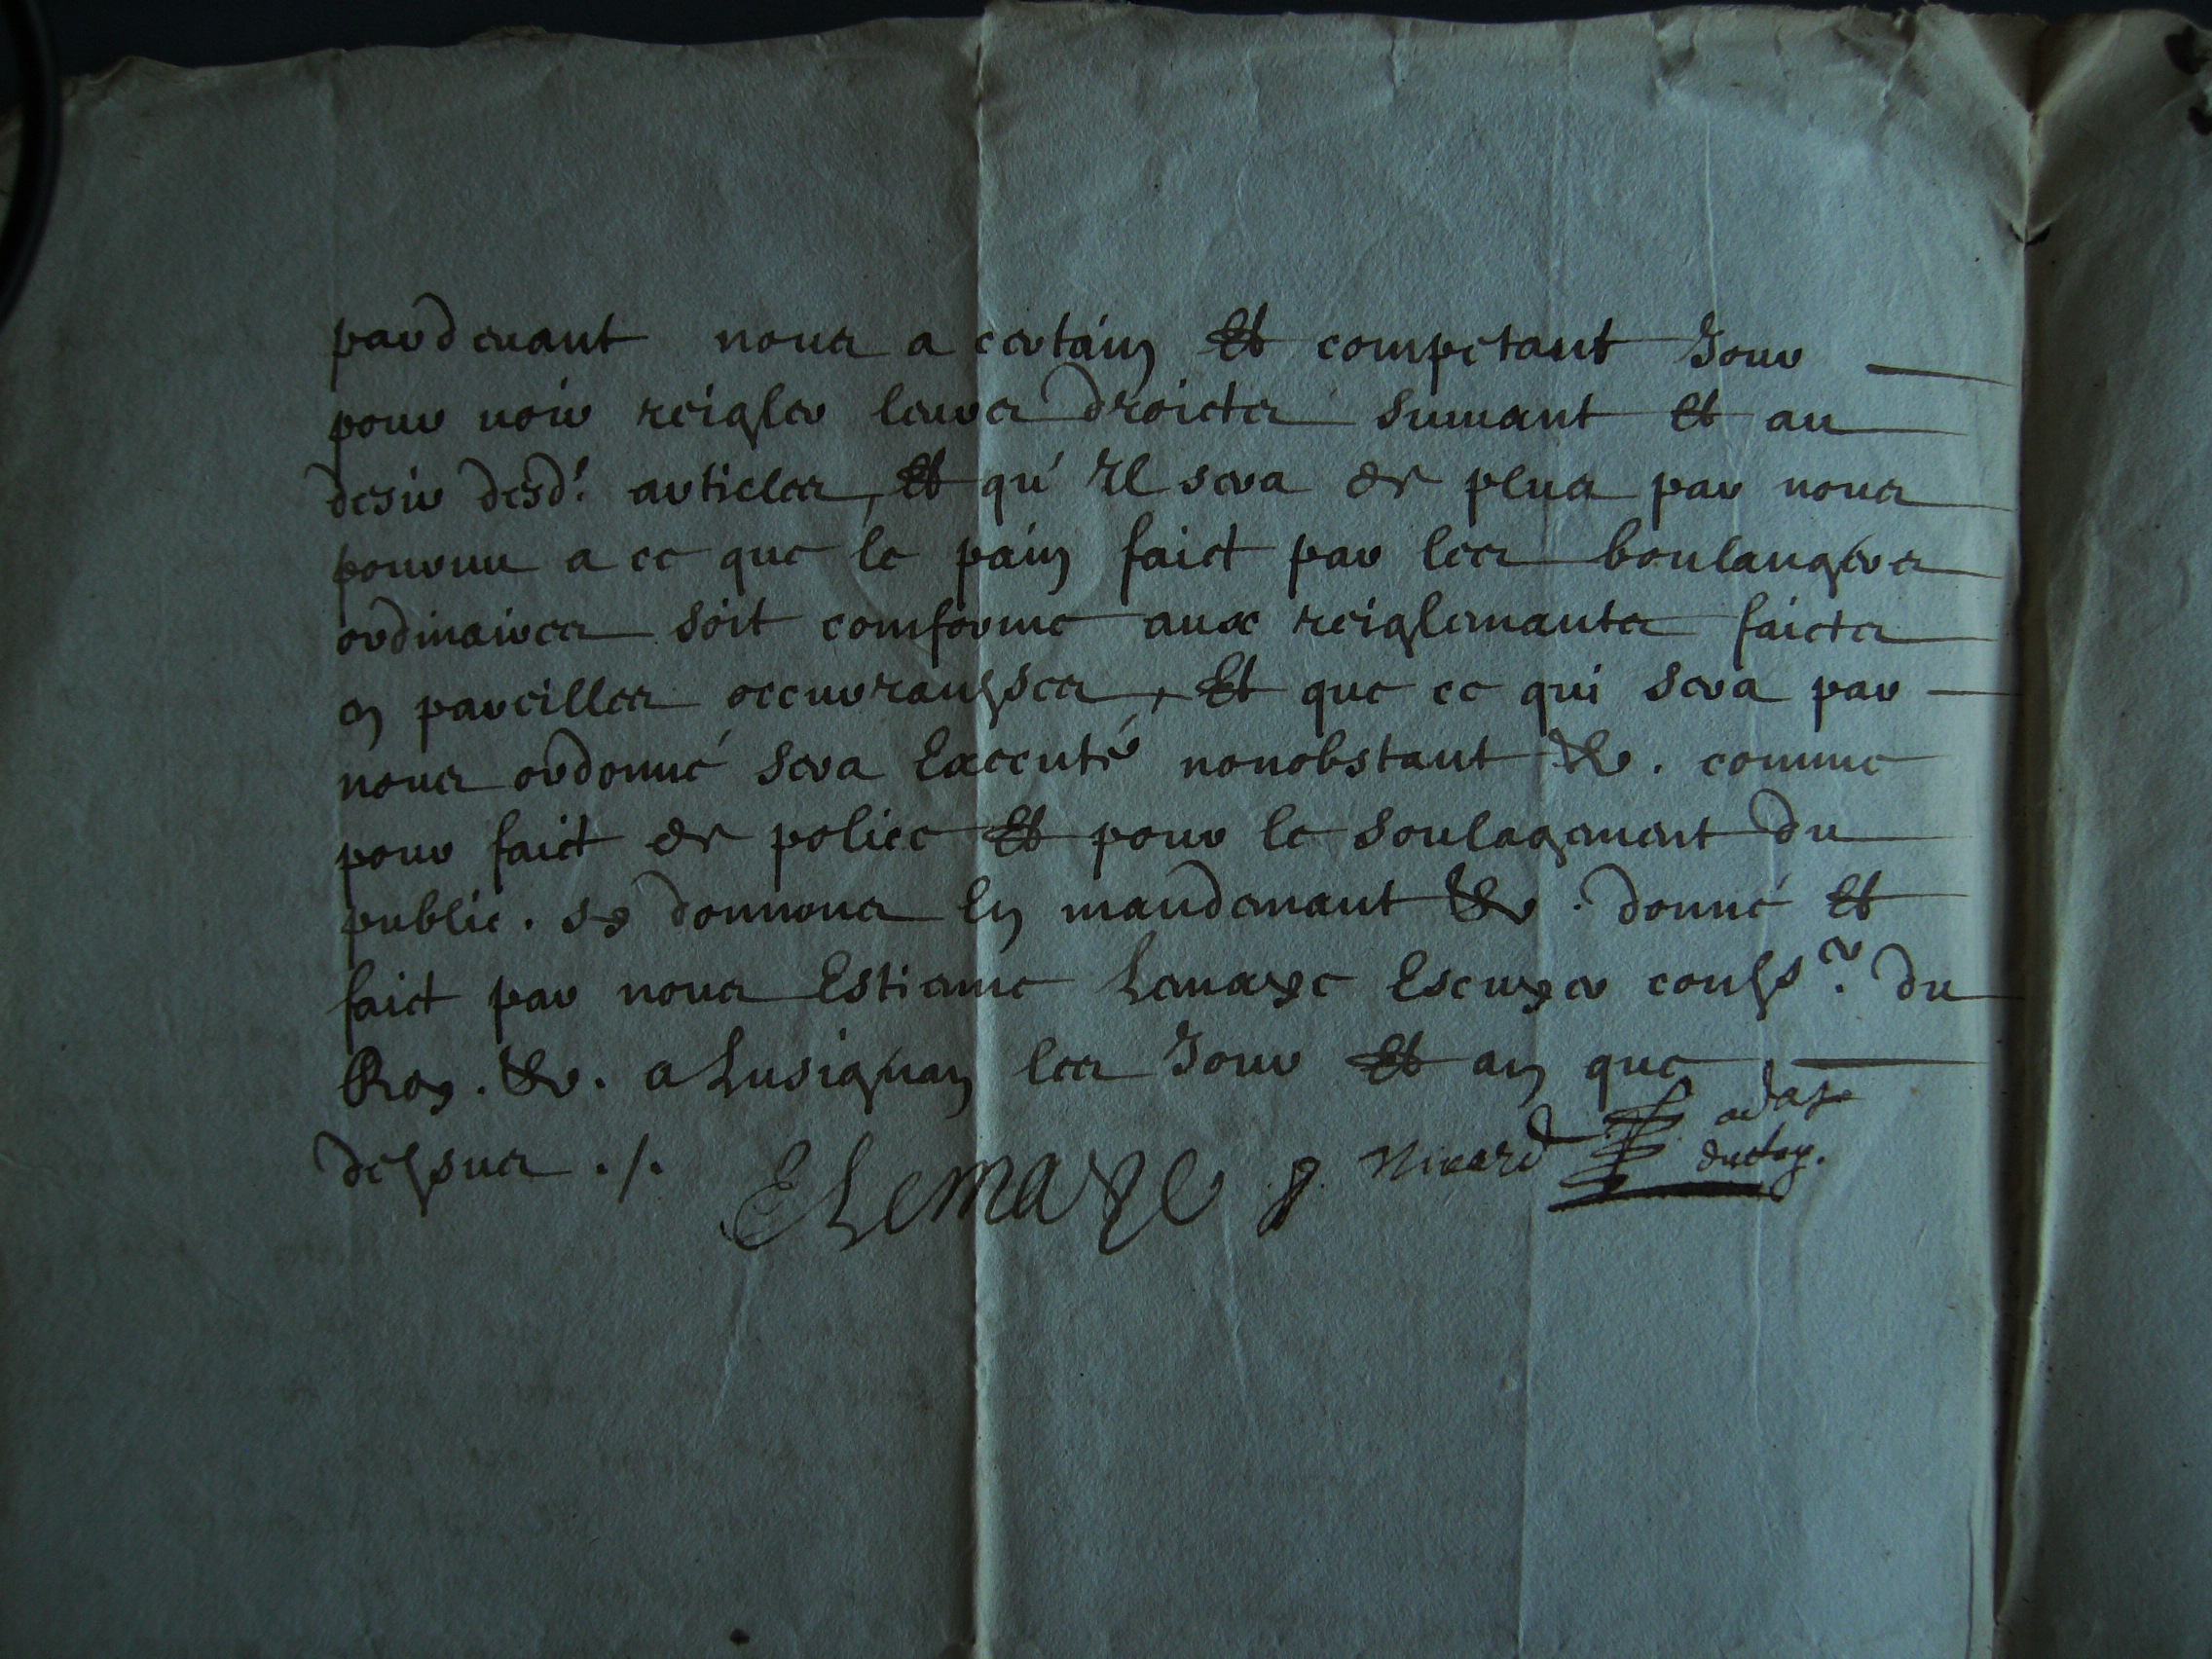 pardevant nous a certain Et competant Jour
pour voir reigler leurs droicts suiuant Et au
desir desd. articles, Et qu'Il sera de plus par nous
pourvu a ce que le pain faict par les boulangers
ordinaires soit comforme aux reiglemants faicts
en pareilles occurransses, Et que ce qui sera par
nous ordonné sera Executé nonobstant &c. comme
pour faict de police Et pour le soulagement du
public. sy donnons En mandemant &c. donné Et
faict par nous Estienne Lemaye Escuyer consser. du
Roy. &c. a Lusignan les Jour Et an que
dessus ./.
E Lemaye J. Nivard